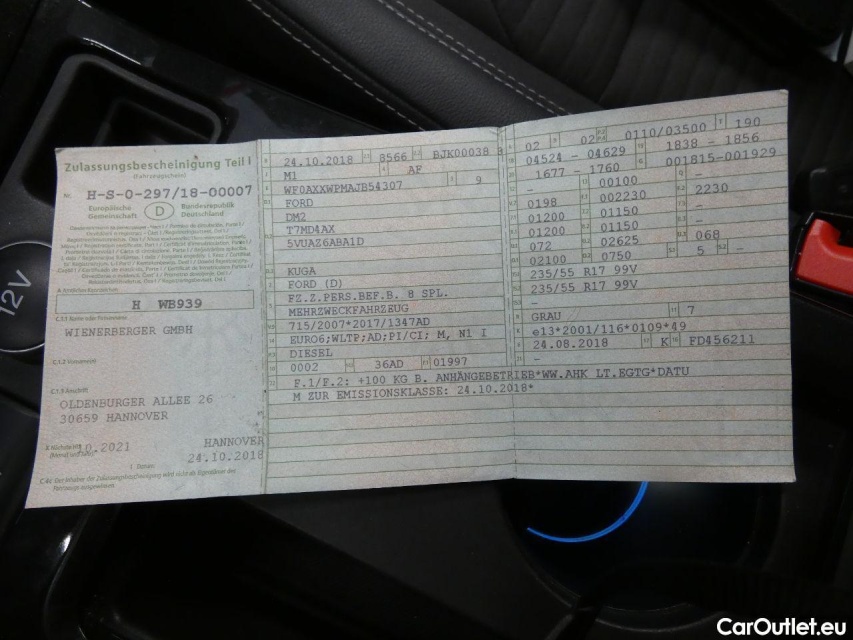 Zulassungsbescheinigung Teil I
(Fahrzeugschein)
Nr. H-S-0-297/18-00007
Europäische Gemeinschaft D Bundesrepublik Deutschland
H WB939
C.1.1 Name oder Firmenname
WIENERBERGER GMBH
C.1.2 Vorname(n)
C.1.3 Anschrift
OLDENBURGER ALLEE 26
30659 HANNOVER
10.2021
HANNOVER
24.10.2018
C.4c Der Inhaber der Zulassungsbescheinigung wird nicht als Eigentümer des Fahrzeugs ausgewiesen.
24.10.2018 8566 BJK00038
M1 AF
WF0AXXWPMAJB54307 9
FORD
DM2
T7MD4AX
5VUAZ6ABA1D
KUGA
FORD (D)
FZ.Z.PERS.BEF.B. 8 SPL.
MEHRZWECKFAHRZEUG
715/2007*2017/1347AD
EURO6;WLTP;AD;PI/CI; M, N1 I
DIESEL
0002 36AD 01997
F.1/F.2: +100 KG B. ANHÄNGEBETRIEB*WW.AHK LT.EGTG*DATU
M ZUR EMISSIONSKLASSE: 24.10.2018*
02 02 0110/03500 190
04524 - 04629 1838 - 1856
1677 - 1760 001815-001929
- 00100 -
0198 002230 2230
01200 01150 -
01200 01150 -
072 02625 068
02100 0750 5 -
235/55 R17 99V
235/55 R17 99V
-
GRAU 7
e13*2001/116*0109*49
24.08.2018 K FD456211
-
12V
CarOutlet.eu